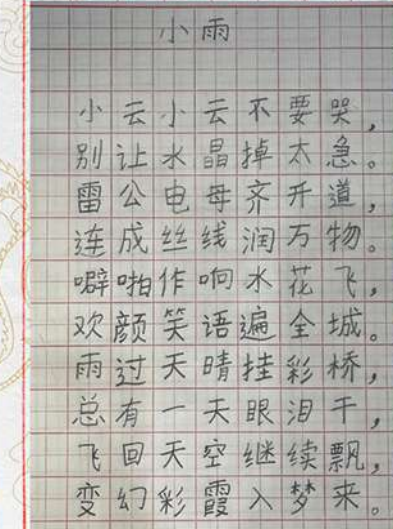 小雨
小云小云不要哭，
别让水晶掉太急。
雷公电母齐开道，
连成丝线润万物。
噼啪作响水花飞，
欢颜笑语遍全城。
雨过天晴挂彩桥，
总有一天眼泪干，
飞回天空继续飘，
变幻彩霞入梦来。